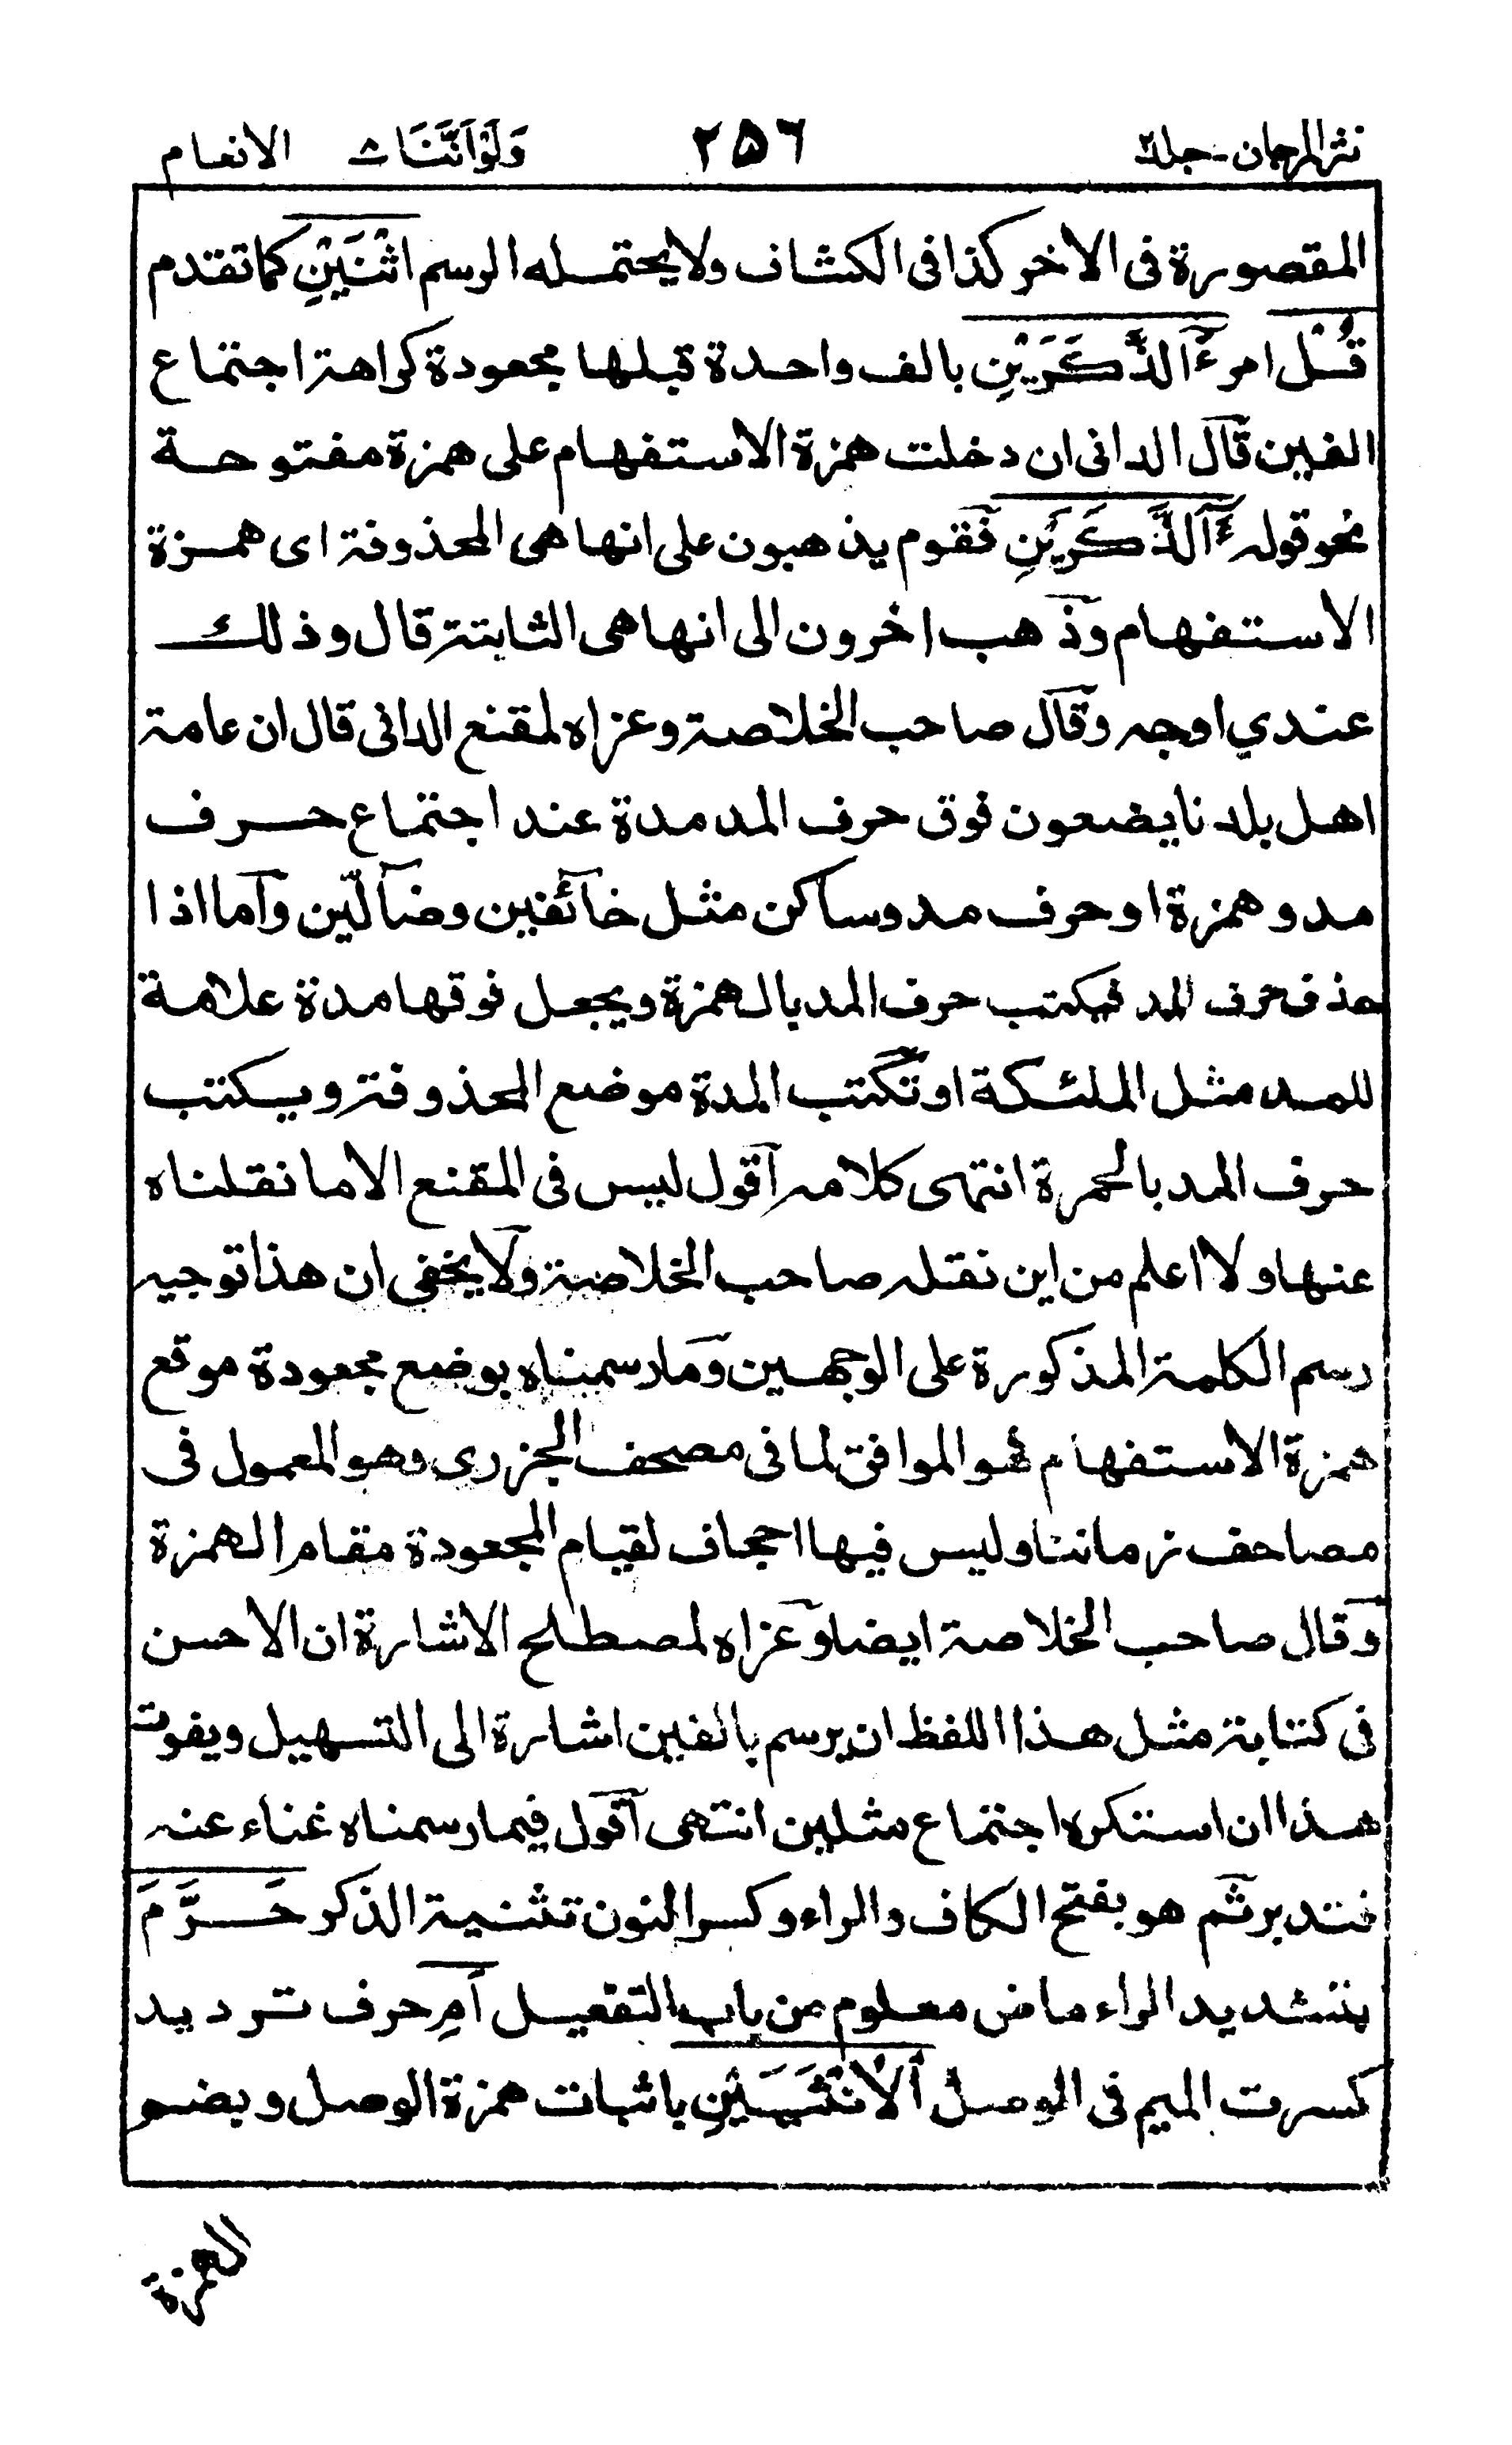 نثر المرجان - جلد ٢ ٢٥٦ وَلَوْ اَنَّنَا ٨ الانعام
المقصورة فى الاخر كذا فى الكشاف ولا يحتمله الرسم اثْنَيْنِ كما تقدم
قُلْ امر ءٰٓالذَّكَرَيْنِ بالف واحدة قبلها مجعودة كراهة اجتماع
الفين قال الدانى ان دخلت همزة الاستفهام على همزة مفتوحة
نحو قوله ءٰٓالذَّكَرَيْنِ فقوم يذهبون على انها هى المحذوفة اى همزة
الاستفهام وذهب اخرون الى انها هى الثابتة قال وذلك
عندي اوجه وقال صاحب الخلاصة وعزاه لمقنع الدانى قال ان عامة
اهل بلدنا يضعون فوق حرف المد مدة عند اجتماع حرف
مد وهمزة او حرف مد وساكن مثل خآئفين وضآلّين وآما اذا
حذف حرف المد فيكتب حرف المد بالهمزة ويجعل فوقها مدة علامة
للمد مثل الملئكة او تكتب المدة موضع المحذوفة ويكتب
حرف المد بالحمرة انتهى كلامه آقول ليس فى المقنع الا ما نقلناه
عنها ولا اعلم من اين نقله صاحب الخلاصة ولا يخفى ان هذا توجيه
رسم الكلمة المذكورة على الوجهين وما رسمناه بوضع مجعودة موقع
همزة الاستفهام هو الموافق لما فى مصحف الجزرى وهو المعمول فى
مصاحف زماننا وليس فيها احجاف لقيام المجعودة مقام الهمزة
وقال صاحب الخلاصة ايضا وعزاه لمصطلح الاشارة ان الاحسن
فى كتابة مثل هذا اللفظ ان يرسم بالفين اشارة الى التسهيل ويفوت
هذا ان استكره اجتماع مثلين انتهى آقول فيما رسمناه غناء عنه
فتدبر ثم هو بفتح الكاف والراء وكسر النون تثنية الذكر حَرَّمَ
بتشديد الراء ماض معلوم من باب التفعيل اَمِ حرف ترديد
كسرت الميم فى الوصل اْلاُنْثَيَيْنِ باثبات همزة الوصل وبضم
الهمزة